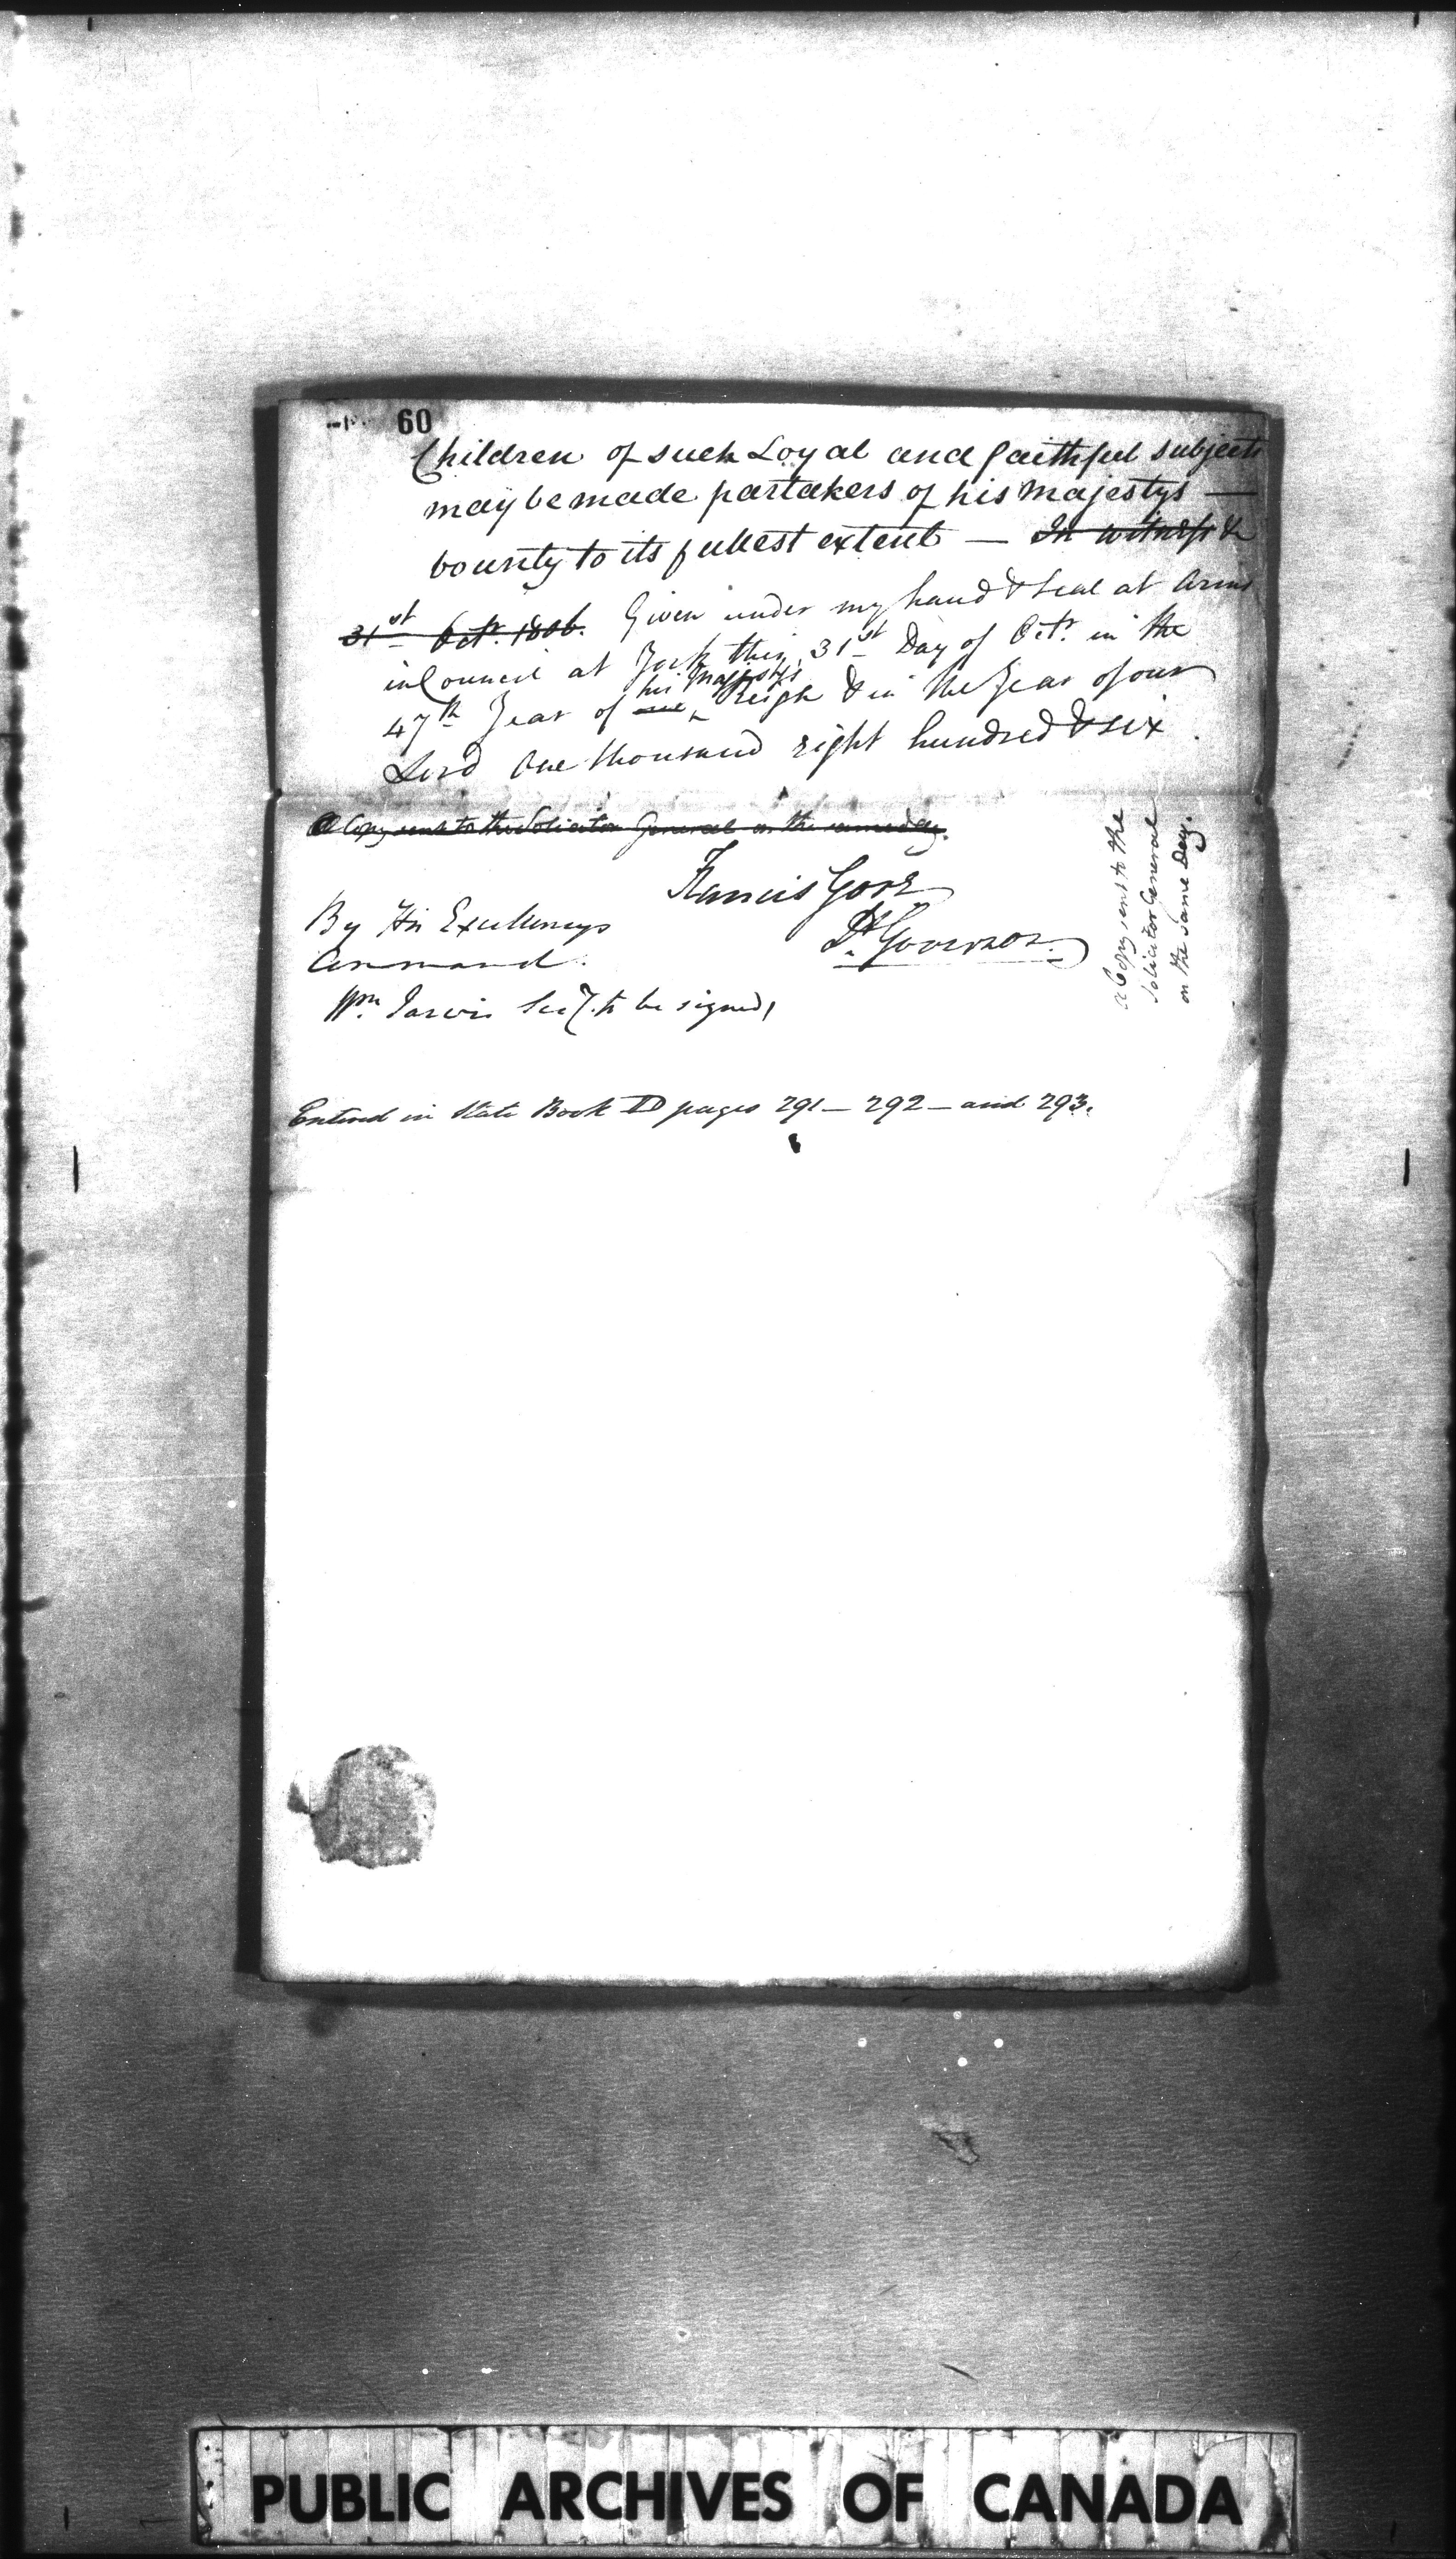 60
Children of such Loyal and faithful subjects
may be made partakers of his Majestys —
bounty to its fullest extent — In witness &
31st Octr. 1806. Given under my hand & Seal at Arms
in Council at York this 31st Day of Octr. in the
his Majestys
47th Year of Reign & in the Year of our
Lord One thousand eight hundred & six
A Copy sent to the Solicitor General on the same day.
Francis Gore
Lt Governor.
By His Excellencys
Command.
Wm. Jarvis Secy. to be signed,
a Copy sent to the
Solicitor General
on the same Day.
Entered in State Book D pages 291 — 292 — and 293.
PUBLIC ARCHIVES OF CANADA